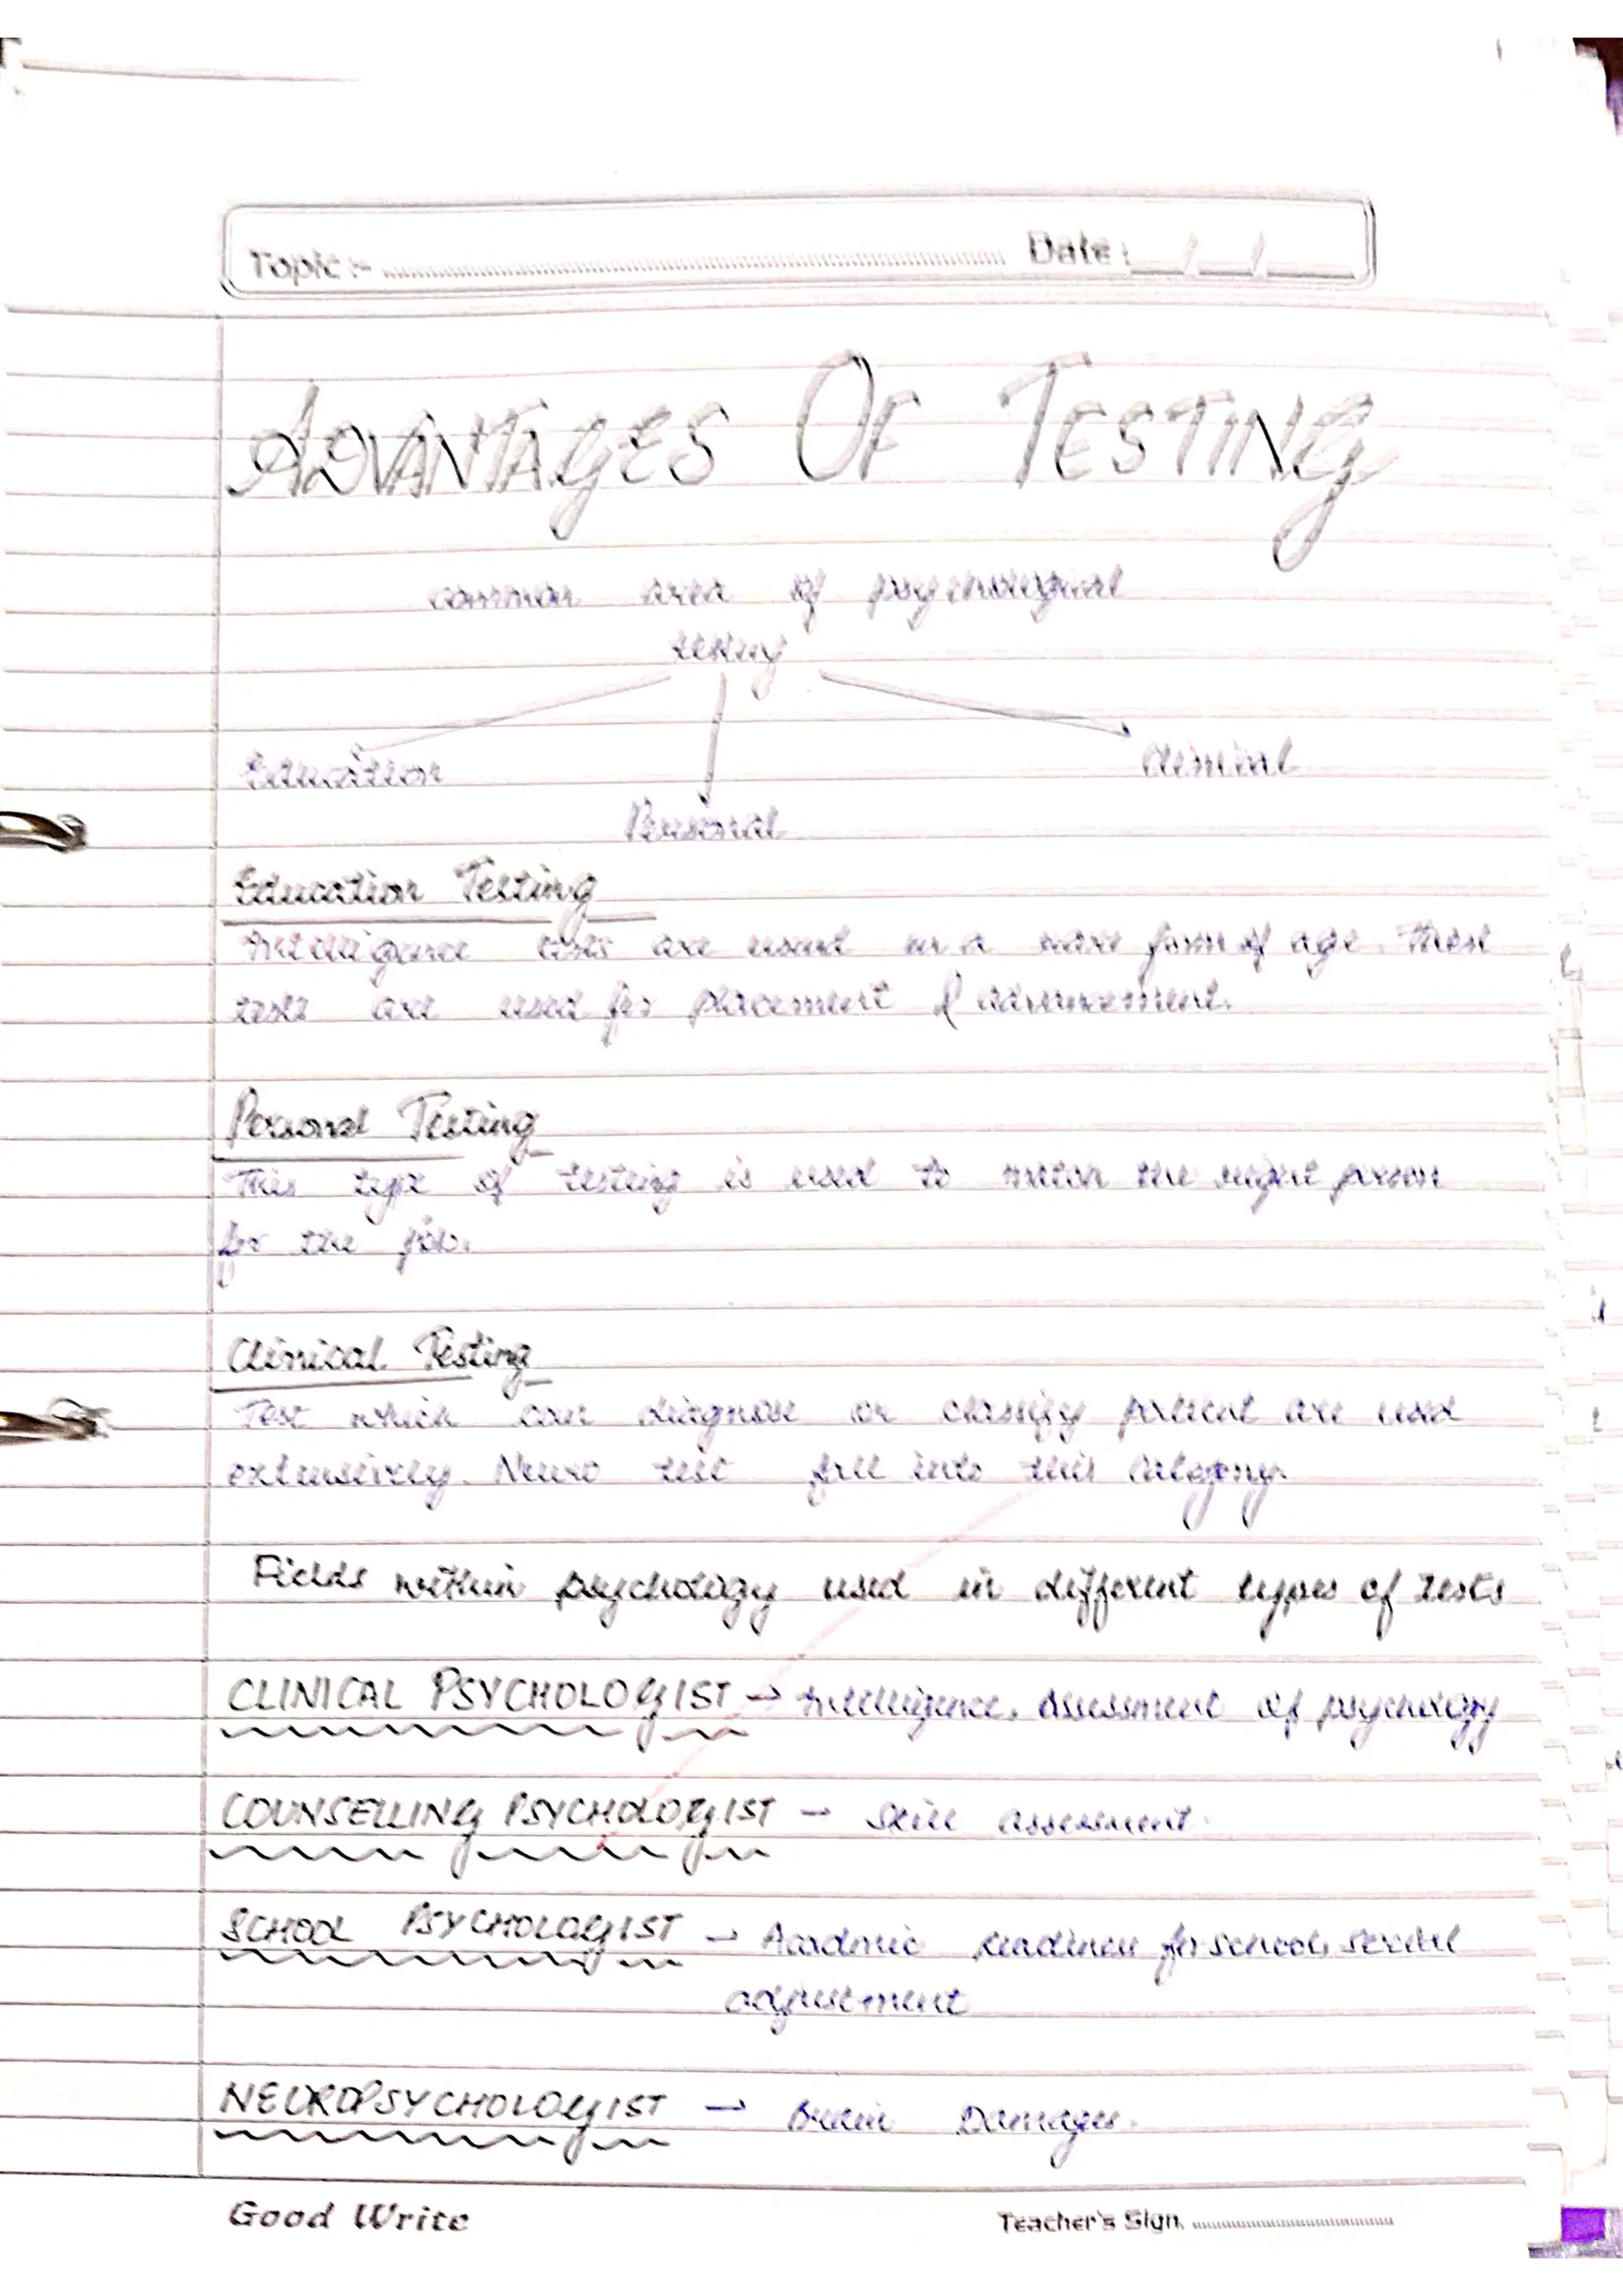 Topic :- Date : / /
ADVANTAGES OF TESTING
common area of psychological
testing
Education Clinical
Personal
Education Testing
Intelligence tests are used in a ware form of age. These
tests are used for placement & advancement.
Personal Testing
This type of testing is used to match the right person
for the job.
Clinical Testing
Test which can diagnose or classify patient are used
extensively. Neuro test fall into this category.
Fields within psychology used in different types of tests
CLINICAL PSYCHOLOGIST → Intelligence, assessment of psychology
COUNSELLING PSYCHOLOGIST → Skill assessment.
SCHOOL PSYCHOLOGIST → Acadmic readiness for school, social
adjustment
NEUROPSYCHOLOGIST → Brain Damages.
Good Write Teacher's Sign.